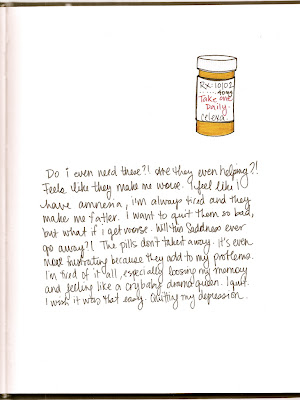 Rx: 10102
40mg
Take one
Daily
celexa
Do i even need these?! Are they even helping?!
Feels like they make me worse. I feel like i
have amnesia, i'm always tired and they
make me fatter. I want to quit them so bad,
but what if i get worse. Will this Saddness ever
go away?! The pills don't take it away. It's even
more frustrating because they add to my problems.
I'm tired of it all, especially loosing my memory
and feeling like a crybaby drama queen. I quit.
I wish it was that easy. Quitting my depression.